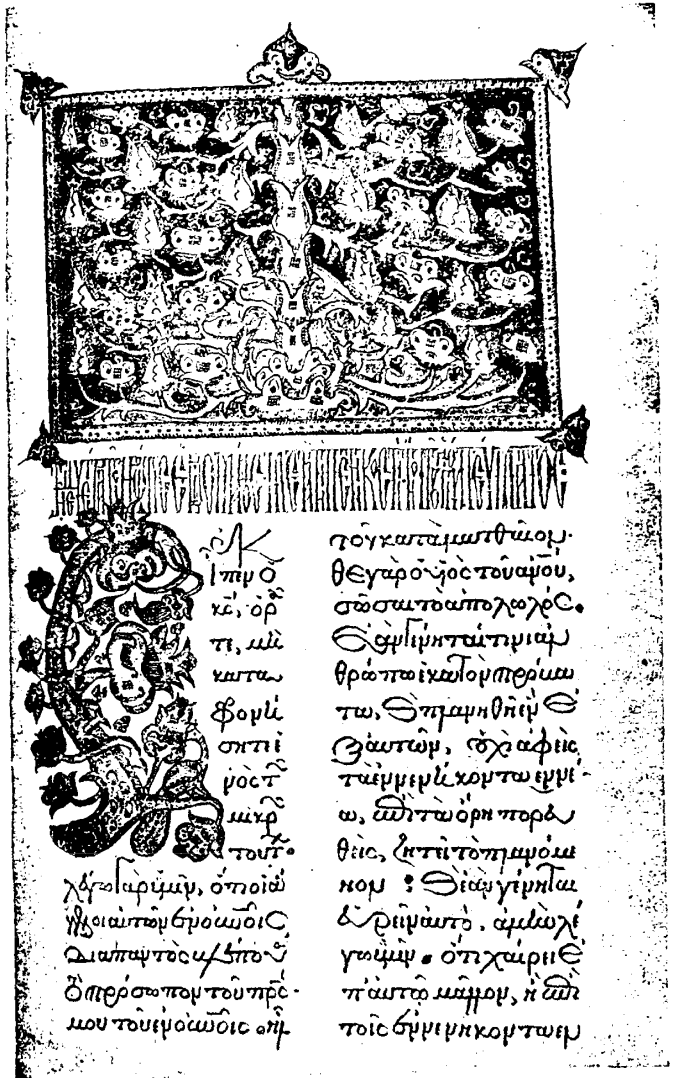 ἐκ
Εἶπεν ὁ
κς, ὁρᾶ
τε, μὴ
κατα
φρονή
σητε ἑ
νὸς τῶν
μικρῶν
τούτων·
λέγω γὰρ ὑμῖν, ὅτι οἱ ἄ
γγελοι αὐτῶν ἐν οὐνοῖς
διαπαντὸς βλέπουσι τ
ὸ πρόσωπον τοῦ πρς
μου τοῦ ἐν οὐνοῖς· ἦλ
τοῦ κατὰ ματθαῖον·
θε γὰρ ὁ υἱὸς τοῦ ανου,
σῶσαι τὸ ἀπολωλός.
ἐὰν γένηταί τινι ἀν
θρώπω ἑκατὸν πρόβα
τα, καὶ πλανηθῆ ἓν ἐ
ξ αὐτῶν, οὐχὶ ἀφεὶς
τὰ ἐννενήκοντα ἐννέ
α, ἐπὶ τὰ ὄρη πορευ
θεὶς, ζητεῖ τὸ πλανώμε
νον; καὶ ἐὰν γένηται
εὑρεῖν αὐτὸ, ἀμὴν λέ
γω ὑμῖν. ὅτι χαίρει ἐ
π' αὐτῶ μᾶλλον, ἢ ἐπὶ
τοῖς ἐννενήκοντα ἐν